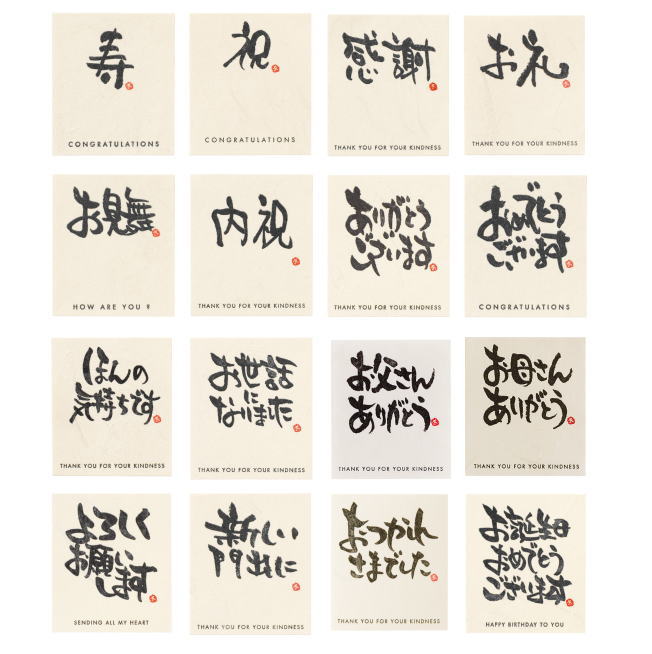 寿
CONGRATULATIONS
祝
CONGRATULATIONS
感謝
THANK YOU FOR YOUR KINDNESS
お礼
THANK YOU FOR YOUR KINDNESS
お見舞
HOW ARE YOU ?
内祝
THANK YOU FOR YOUR KINDNESS
ありがとう
ございます
THANK YOU FOR YOUR KINDNESS
おめでとう
ございます
CONGRATULATIONS
ほんの
気持ちです
THANK YOU FOR YOUR KINDNESS
お世話
に
なりました
THANK YOU FOR YOUR KINDNESS
お父さん
ありがとう
THANK YOU FOR YOUR KINDNESS
お母さん
ありがとう
THANK YOU FOR YOUR KINDNESS
よろしく
お願い
します
SENDING ALL MY HEART
新しい
門出に
THANK YOU FOR YOUR KINDNESS
おつかれ
さまでした
THANK YOU FOR YOUR KINDNESS
お誕生日
おめでとう
ございます
HAPPY BIRTHDAY TO YOU